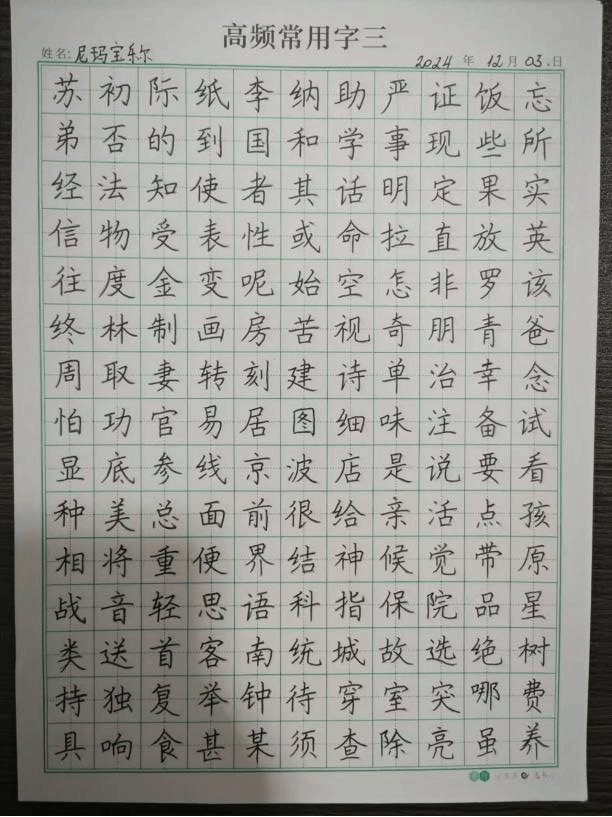 高频常用字三
姓名: 尼玛宝乐尔 2024 年 12 月 03 日
苏初际纸李纳助严证饭忘
弟否的到国和学事现些所
经法知使者其话明定果实
信物受表性或命拉直放英
往度金变呢始空怎非罗该
终林制画房苦视奇朋青爸
周取妻转刻建诗单治幸念
怕功官易居图细味注备试
显底参线京波店是说要看
种美总面前很给亲活点孩
相将重便界结神候觉带原
战音轻思语科指保院品星
类送首客南统城故选绝树
持独复举钟待穿室突哪费
具响食甚某须查除亮虽养